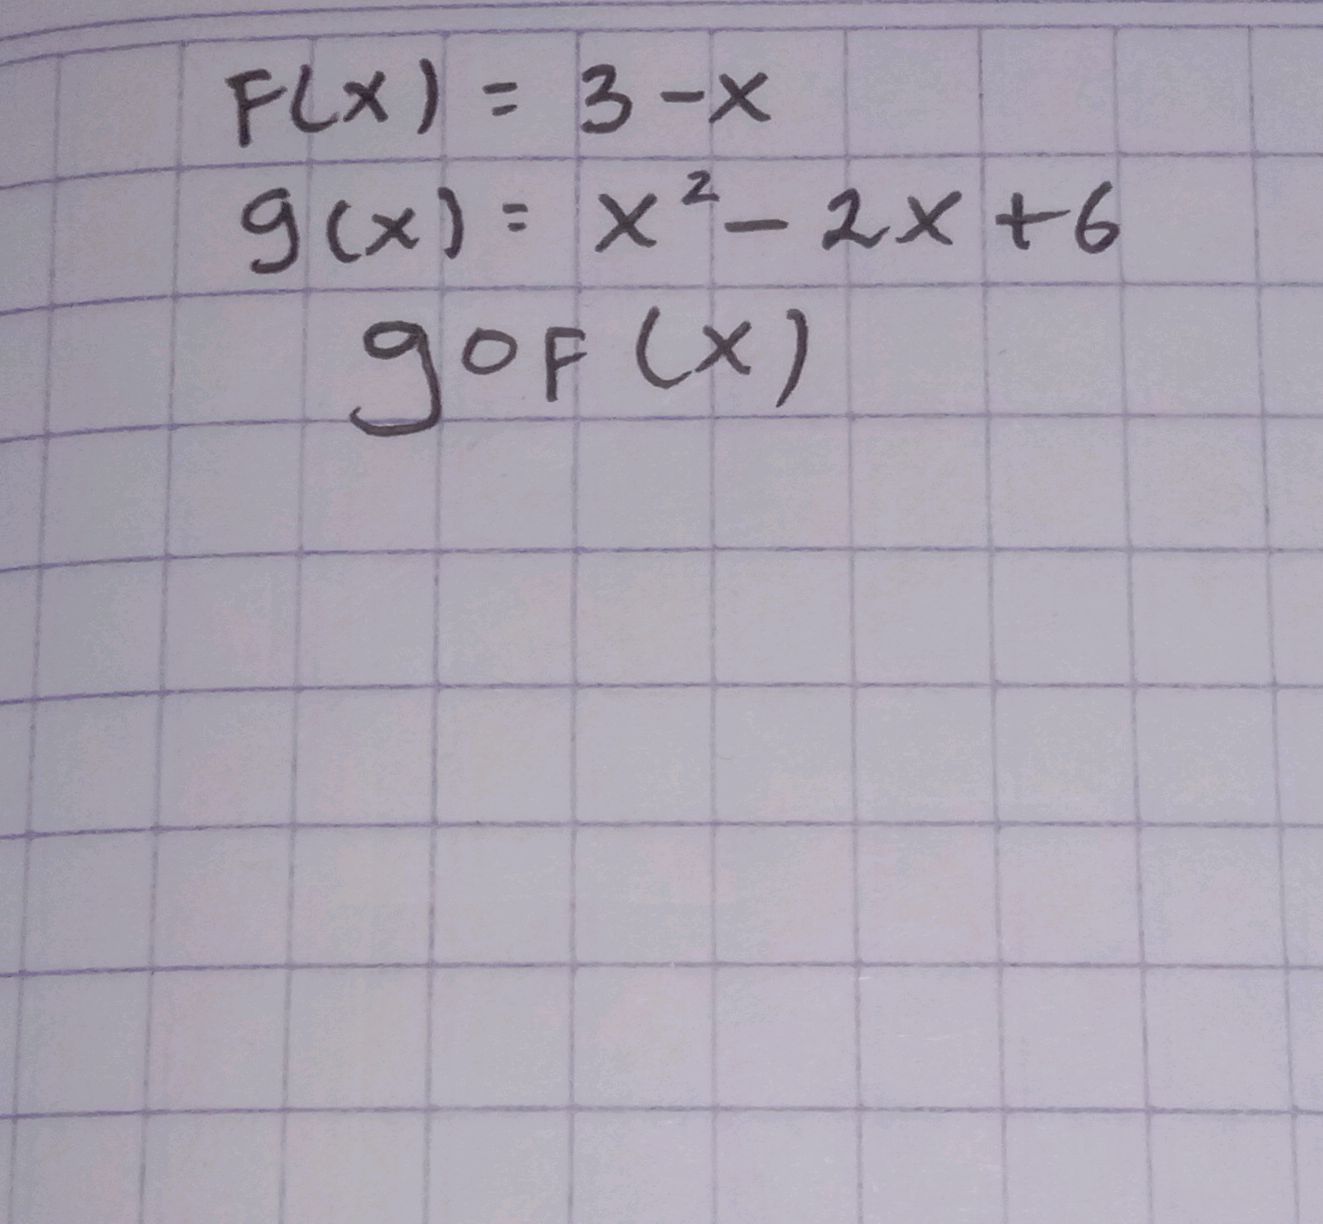 F(x) = 3 - x
g(x) = x² - 2x + 6
goF (x)